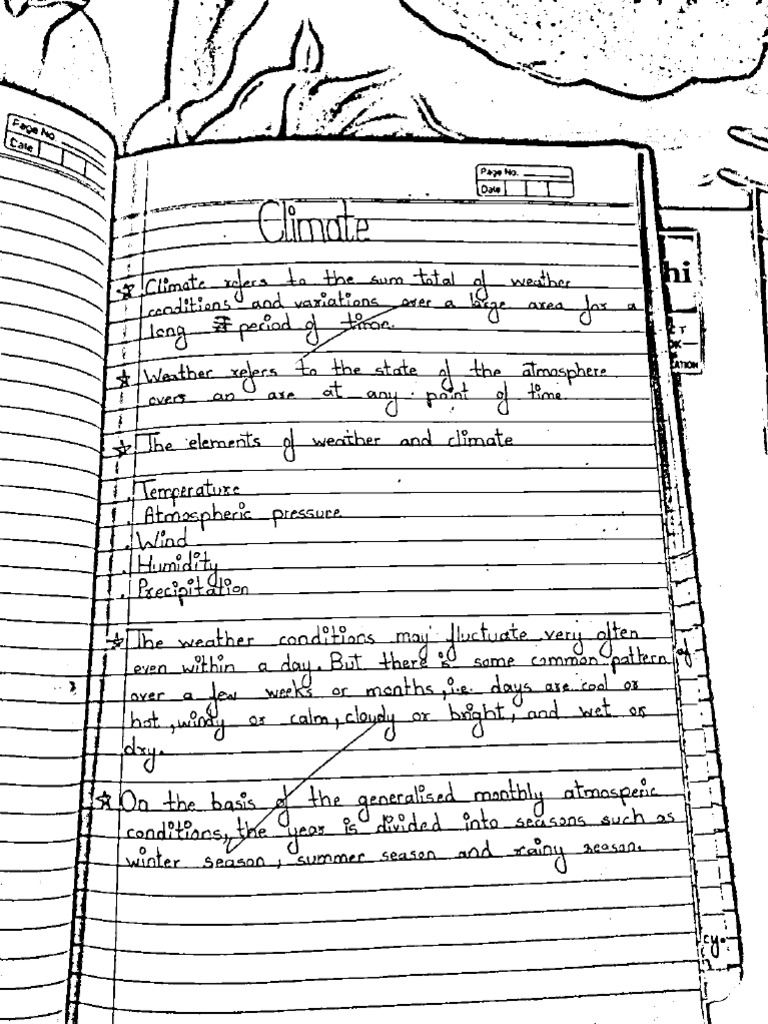 Page No.
Date
Page No.
Date
Climate
☆ Climate refers to the sum total of weather
conditions and variations over a large area for a
long period of time.
☆ Weather refers to the state of the atmosphere
overs an are at any point of time
☆ The elements of weather and climate
. Temperature
. Atmospheric pressure
. Wind
. Humidity
. Precipitation
☆ The weather conditions may fluctuate very often
even within a day. But there is some common pattern
over a few weeks or months, i.e. days are cool or
hot, windy or calm, cloudy or bright, and wet or
dry.
☆ On the basis of the generalised monthly atmosperic
conditions, the year is divided into seasons such as
winter season, summer season and rainy season.
hi
of
cy.